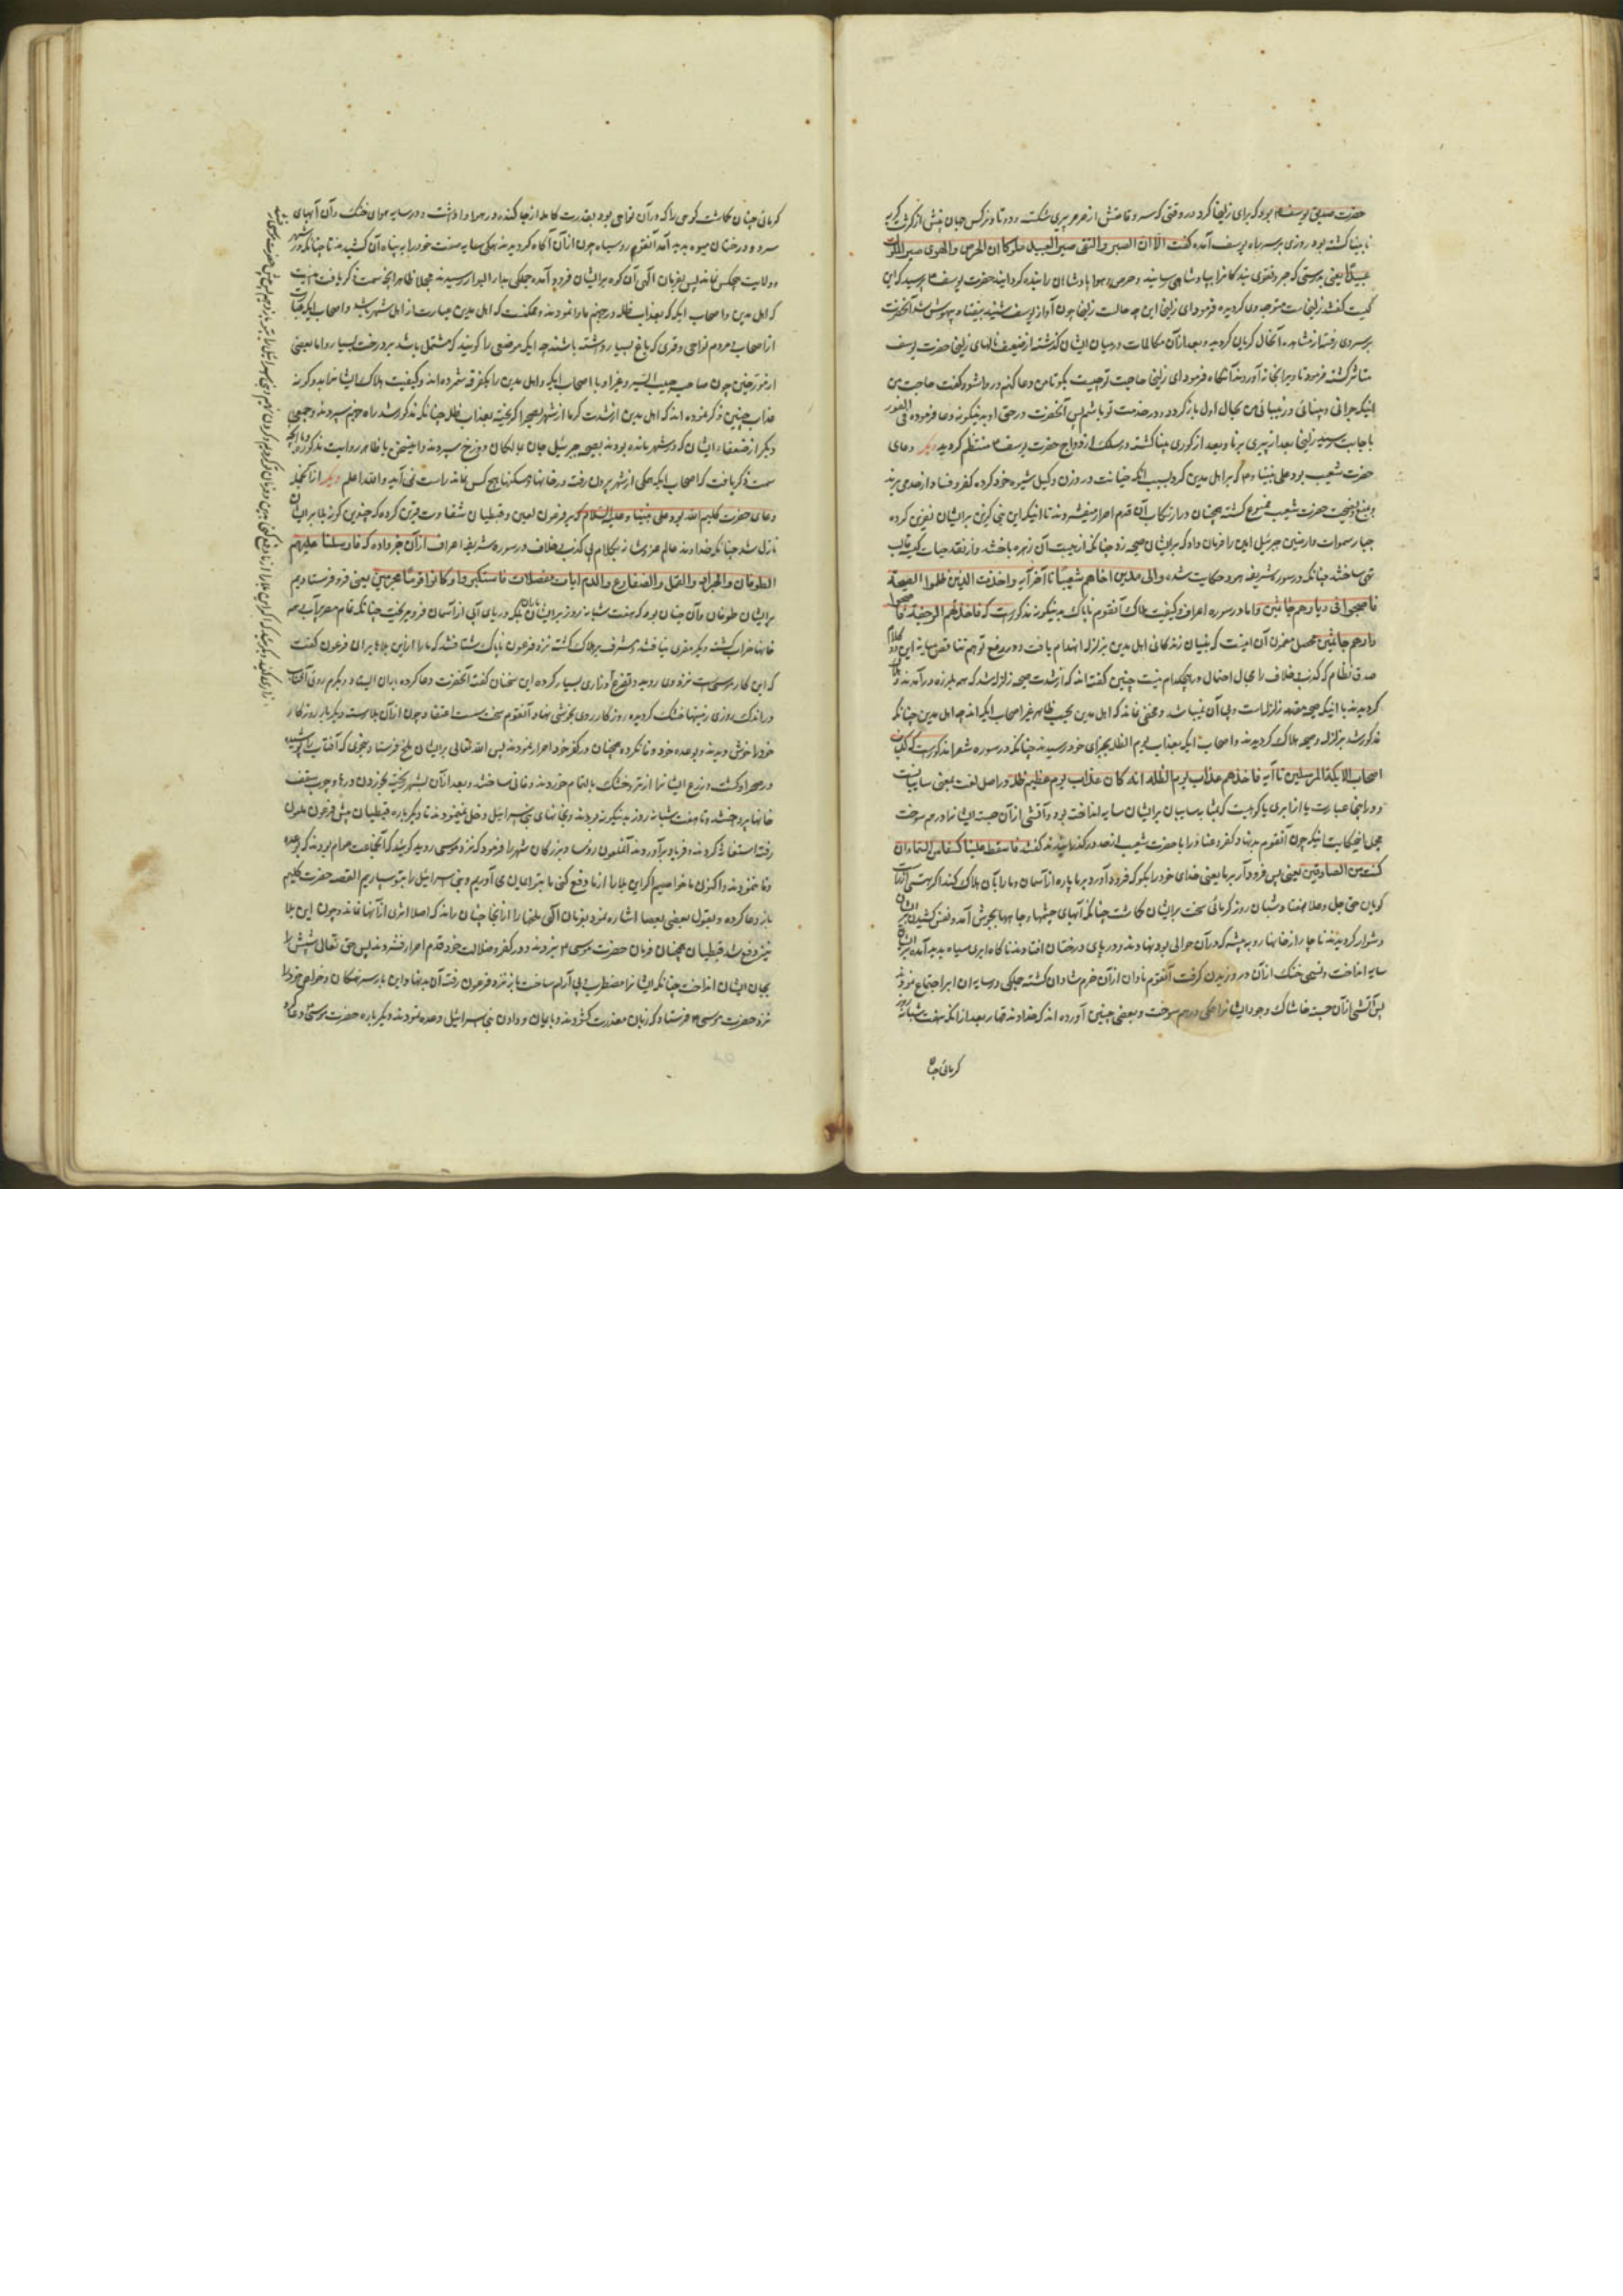 حضرت صدیق یوسف بود که برای زلیخا کرد در وقتی که سرو قامتش از صرصر پیری شکست و دوتا و نرکس جهان بینش از کثرت کریه
نابینا کشته بود روزی بر سر راه یوسف آمده کفت الا ان الصبر والتقی صیر العبید ملوکا ان الحرص والهوی صیر الملوک
عبیدا یعنی بدرستی که صبر و تقوی بندکانرا بپادشاهی رسانید و حرص و هوا پادشاهان را بنده کردانید حضرت یوسف پرسید که این
کیست کفتند زلیخاست متوجه وی کردیده فرمود ای زلیخا این چه حالت زلیخا چون آواز یوسف شنید بیفتاد و بیهوش شد آنحضرت
بر سر وی رفته از مشاهده آنحال کریان کردید و بعد از آن مکالمات در میان ایشان کذشته از ضعیف نالهای زلیخا حضرت یوسف
متاثر کشته فرمود تا ویرا بخانه آوردند آنکاه فرمود ای زلیخا حاجت تو چیست بکو تا من دعا کنم و روا شود کفت حاجت من
اینکه جوانی و بینائی و زیبائی من بحال اول باز کردد و در خدمت تو باشم پس آنحضرت در حق او بدینکونه دعا فرموده فی الفور
باجابت رسید زلیخا بعد از پیری برنا و بعد از کوری بینا کشته در سلک ازدواج حضرت یوسف منتظم کردید دیکر دعای
حضرت شعیب بود علی نبینا و که بر اهل مدین کرد بسبب آنکه خیانت در وزن و کیل شیوه خود کرده کفر و فساد از حد می بردند
و بمنع و نصیحت حضرت شعیب ممنوع نکشته همچنان در ارتکاب آن قدم اصرار میفشردند تا اینکه این نبی کزین بر ایشان نفرین کرده
جبار سموات و ارضین جبرئیل امین را فرمان داد که بر ایشان صیحه زد چنانکه از هیبت آن زهره باختند و از نقد حیات کیسه قالب
تهی ساختند چنانکه در سوره شریفه هود حکایت شده والی مدین اخاهم شعیبا تا آخر آیه واخذت الذین ظلموا الصیحة
فاصبحوا فی دیارهم جاثمین و اما در سوره اعراف کیفیت هلاک آنقوم ناپاک بدینکونه مذکورست که فاخذتهم الرجفة فاصبحوا
فی دارهم جاثمین محصل مضمون آن اینست که بنیان زندکانی اهل مدین بزلزله انهدام یافت و در رفع توهم تناقض میانه این دو کلام
صدق نظام که کذب و خلاف را مجال احتمال در هیچکدام نیست چنین کفته اند که از شدت صیحه زلزله شد که همه بلرزه درآمدند و هلاک
کردیدند با اینکه صیحه مقدمه زلزله است و بی آن نمیباشد و مخفی نماند که اهل مدین بحسب ظاهر غیر اصحاب ایکه اند چه اهل مدین چنانکه
مذکور شد بزلزله و صیحه هلاک کردیدند و اصحاب ایکه بعذاب یوم الظله بجزای خود رسیدند چنانکه در سوره شعرا مذکورست که کذب
اصحاب الایکة المرسلین تا آیه فاخذهم عذاب یوم الظلة انه کان عذاب یوم عظیم ظله در اصل لغت بمعنی سایبانست
و در اینجا عبارت یا از ابری یا کوهیست که بمثابه سایبان بر ایشان سایه انداخت بود و آتشی از آن جسته ایشانرا در هم سوخت
مجمل اینحکایت اینکه چون آنقوم بدنهاد کفر و عناد را با حضرت شعیب از حد در کذرانیدند کفتند فاسقط علینا کسفا من السماء ان
کنت من الصادقین یعنی پس فرود آر بر ما یعنی خدای خود را بکو که فرود آورد بر ما پاره از آسمان و ما را بآن هلاک کند اکر هستی از راست
کویان حق جل و علا هفت شبان روز کرمائی سخت بر ایشان کماشت چنانکه آبهای چشمها و چاهها بجوش آمد و نفس کشیدن بر ایشان
دشوار کردید تا چار از خانها رو به بیشه که در آن حوالی بود نهادند و در پای درختان افتادند ناکاه ابری سیاه پدید آمده بر ایشان
سایه انداخت و نسیمی خنک از آن در وزیدن کرفت آنقوم نادان از آن خرم و شادان کشته جملکی در سایه آن ابر اجتماع نمودند
پس آتشی از آن جسته خاشاک وجود ایشانرا همکی در هم سوخت و بعضی چنین آورده اند که خداوند قهار بعد از انکه هفت شبانه روز
کرمائی چنان
کرمائی چنان کماشت کوهی را که در آن نواحی بود بقدرت کامله از جا کنده در هوا واداشت و در سایه هوای خنک و آن آبهای
سرد و درختان میوه پدید آمد آنقوم روسیاه چون از آن آکاه کردیدند همکی سایه صفت خود را به پناه آن کشیدند تا چنانکه در شهر
و ولایت هیچکس نماند پس بفرمان الهی آن کوه بر ایشان فرود آمده جملکی بدار البوار رسیدند مجملا ظاهر انچه سمت ذکر یافت اینست
که اهل مدین و اصحاب ایکه که بعذاب ظله در جهنم ماوا نمودند و ممکنست که اهل مدین عبارت از اهل شهر باشد و اصحاب ایکه عبارت
از اصحاب و مردم نواحی و قری که باغ بسیار داشته باشند چه ایکه موضعی را کویند که مشتمل باشد بر درخت بسیار و اما بعضی
از مورخین چون صاحب حبیب السیر و غیر او با اصحاب ایکه و اهل مدین را یکفرقه شمرده اند و کیفیت هلاک ایشانرا بدو کونه
عذاب چنین ذکر نموده اند که اهل مدین از شدت کرما از شهر بصحرا کریخته بعذاب ظله چنانکه مذکور شد راه جهنم سپردند و جمعی
دیکر از ضعفاء ایشان که در شهر مانده بودند بصیحه جبرئیل جان بمالکان دوزخ سپردند و اینسخن با ظاهر روایت مذکوره و آنچه
سمت ذکر یافت که اصحاب ایکه همکی از شهر بیرون رفته در خانها و مسکنها هیچ کس نماند راست نمی آید والله اعلم دیکر از آنجمله
دعای حضرت کلیم الله بود علی نبینا و علیه السلام که بر فرعون لعین و قبطیان شقاوت قرین کرده که چندین کونه بلا بر ایشان
نازل شد چنانکه خداوند عالم عز شانه بکلام بی کذب و خلاف در سوره شریفه اعراف از آن خبر داده که فارسلنا علیهم
الطوفان والجراد والقمل والضفادع والدم ایات مفصلات فاستکبروا وکانوا قوما مجرمین یعنی فرو فرستادیم
بر ایشان طوفان و آن چنان بود که هفت شبانه روز بر ایشان باران بلکه دریای آبی از آسمان فرو میریخت چنانکه تمام مصر را آب برد
خانها خراب کشته دیکر مفری نیافتند و مشرف بر هلاک کشته نزد فرعون ناپاک شتافتند که ما را از این بلاء برهان فرعون کفت
که این کار موسی است نزد وی روید و تضرع و زاری بسیار کرده این سخنان کفته آنحضرت دعا کرده باران ایستاد و دیکرم روئی آفتاب
در اندک روزی زمینها خشک کردیده روز کار روی بخوشی نهاد و آنقوم سخت سست اعتقاد چون از آن بلا رسته دیکر باره روزکار
خود را خوش دیدند و بوعده خود وفا نکرده همچنان در کفر خود اصرار نمودند پس الله تعالی بر ایشان ملخ فرستاد بنحوی که آفتاب پوشیده
در صحرا و کشت و زرع ایشانرا از تر و خشک بالتمام خوردند و فانی ساختند و بعد از آن بشهر ریخته بخوردن درها و چوب سقف
خانها پرداختند و تا هفت شبانه روز بدینکونه بودند و بخانهای بنی اسرائیل دخل نمینمودند تا دیکر باره قبطیان پیش فرعون ملعون
رفته استغاثه کردند و فریاد برآوردند آنملعون رؤسا و بزرکان شهر را فرمود که نزد موسی روید کویند که آنجماعت عوام بودند که بوعده
وفا ننمودند و اکنون ما خواصیم اکر این بلا را از ما دفع کنی ما بتو ایمان می آوریم و بنی اسرائیل را بتو سپاریم القصه حضرت کلیم
باز دعا کرده و بقول بعضی بعصا اشاره نمود بفرمان الهی ملخها را از آنجا چنان راند که اصلا اثری از آنها نماند و چون این بلا
نیز دفع شد قبطیان همچنان فرمان حضرت موسی نبردند و در کفر و ضلالت خود قدم اصرار فشردند پس حق تعالی شپش را
بجان ایشان انداخت چنانکه ایشانرا مضطرب و بی آرام ساخت باز نزد فرعون رفته آن بدنهاد این بار سرهنکان و خواص خود را
نزد حضرت موسی فرستاد که زبان معذرت کشودند و بایمان و دادن بنی اسرائیل وعده نمودند دیکر باره حضرت موسی دعا کرد